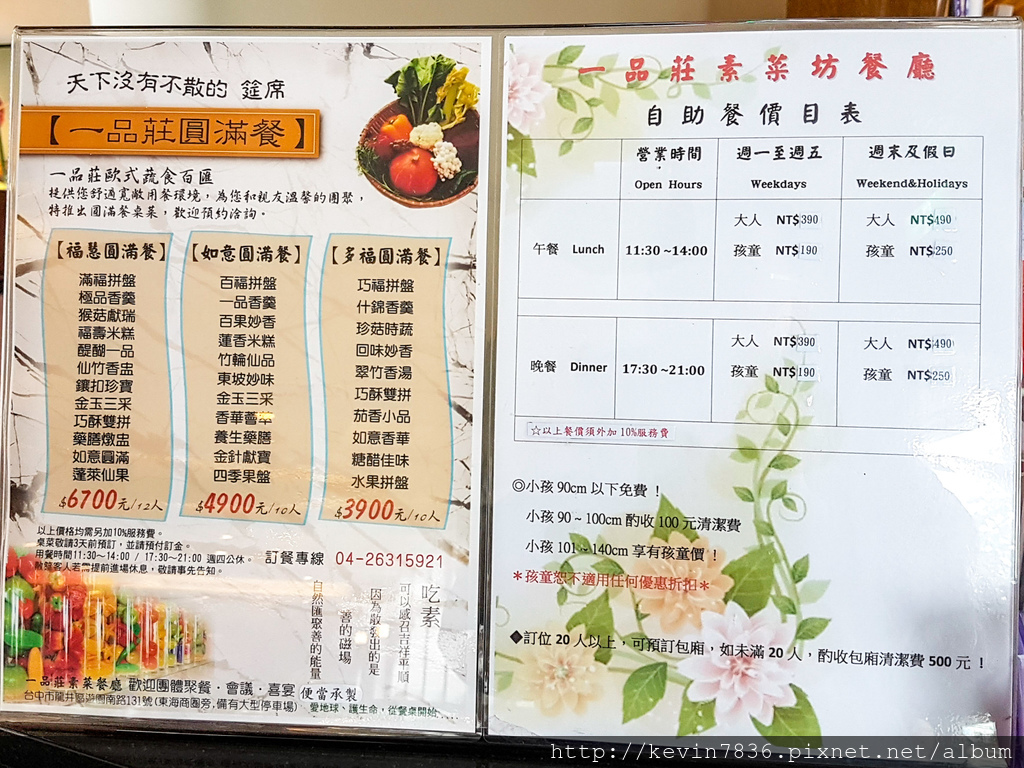 天下沒有不散的 筵席
【一品莊圓滿餐】
一品莊歐式蔬食百匯
提供您舒適寬敞用餐環境，為您和親友溫馨的團聚，
特推出圓滿餐桌菜，歡迎預約洽詢。
【福慧圓滿餐】
滿福拼盤
極品香羹
猴菇獻瑞
福壽米糕
醍醐一品
仙竹香盅
鑲扣珍寶
金玉三采
巧酥雙拼
藥膳燉盅
如意圓滿
蓬萊仙果
$6700元/12人
【如意圓滿餐】
百福拼盤
一品香羹
百果妙香
蓮香米糕
竹輪仙品
東坡妙味
金玉三采
香華薈萃
養生藥膳
金針獻寶
四季果盤
$4900元/10人
【多福圓滿餐】
巧福拼盤
什錦香羹
珍菇時蔬
回味妙香
翠竹香湯
巧酥雙拼
茄香小品
如意香華
糖醋佳味
水果拼盤
$3900元/10人
以上價格均需另加10%服務費。
桌菜敬請3天前預訂，並請預付訂金。
用餐時間11:30~14:00 / 17:30~21:00 週四公休。
散發客人若需提前進場休息，敬請事先告知。
訂餐專線 04-26315921
吃素
可以感召吉祥平順
因為散發出的是
善的磁場
自然匯聚善的能量
一品莊素菜餐廳 歡迎團體聚餐．會議．喜宴 便當承製
台中市龍井區遊園南路131號(東海商圈旁,備有大型停車場) 愛地球、護生命，從餐桌開始.....
一品莊素菜坊餐廳
自助餐價目表
營業時間 週一至週五 週末及假日
Open Hours Weekdays Weekend&Holidays
午餐 Lunch 11:30~14:00
大人 NT$390 大人 NT$490
孩童 NT$190 孩童 NT$250
晚餐 Dinner 17:30~21:00
大人 NT$390 大人 NT$490
孩童 NT$190 孩童 NT$250
☆以上餐價須外加 10%服務費
◎小孩 90cm 以下免費！
小孩 90~100cm 酌收 100 元清潔費
小孩 101~140cm 享有孩童價！
＊孩童恕不適用任何優惠折扣＊
◆訂位 20 人以上，可預訂包廂，如未滿 20 人，酌收包廂清潔費 500 元！
http://kevin7836.pixnet.net/album